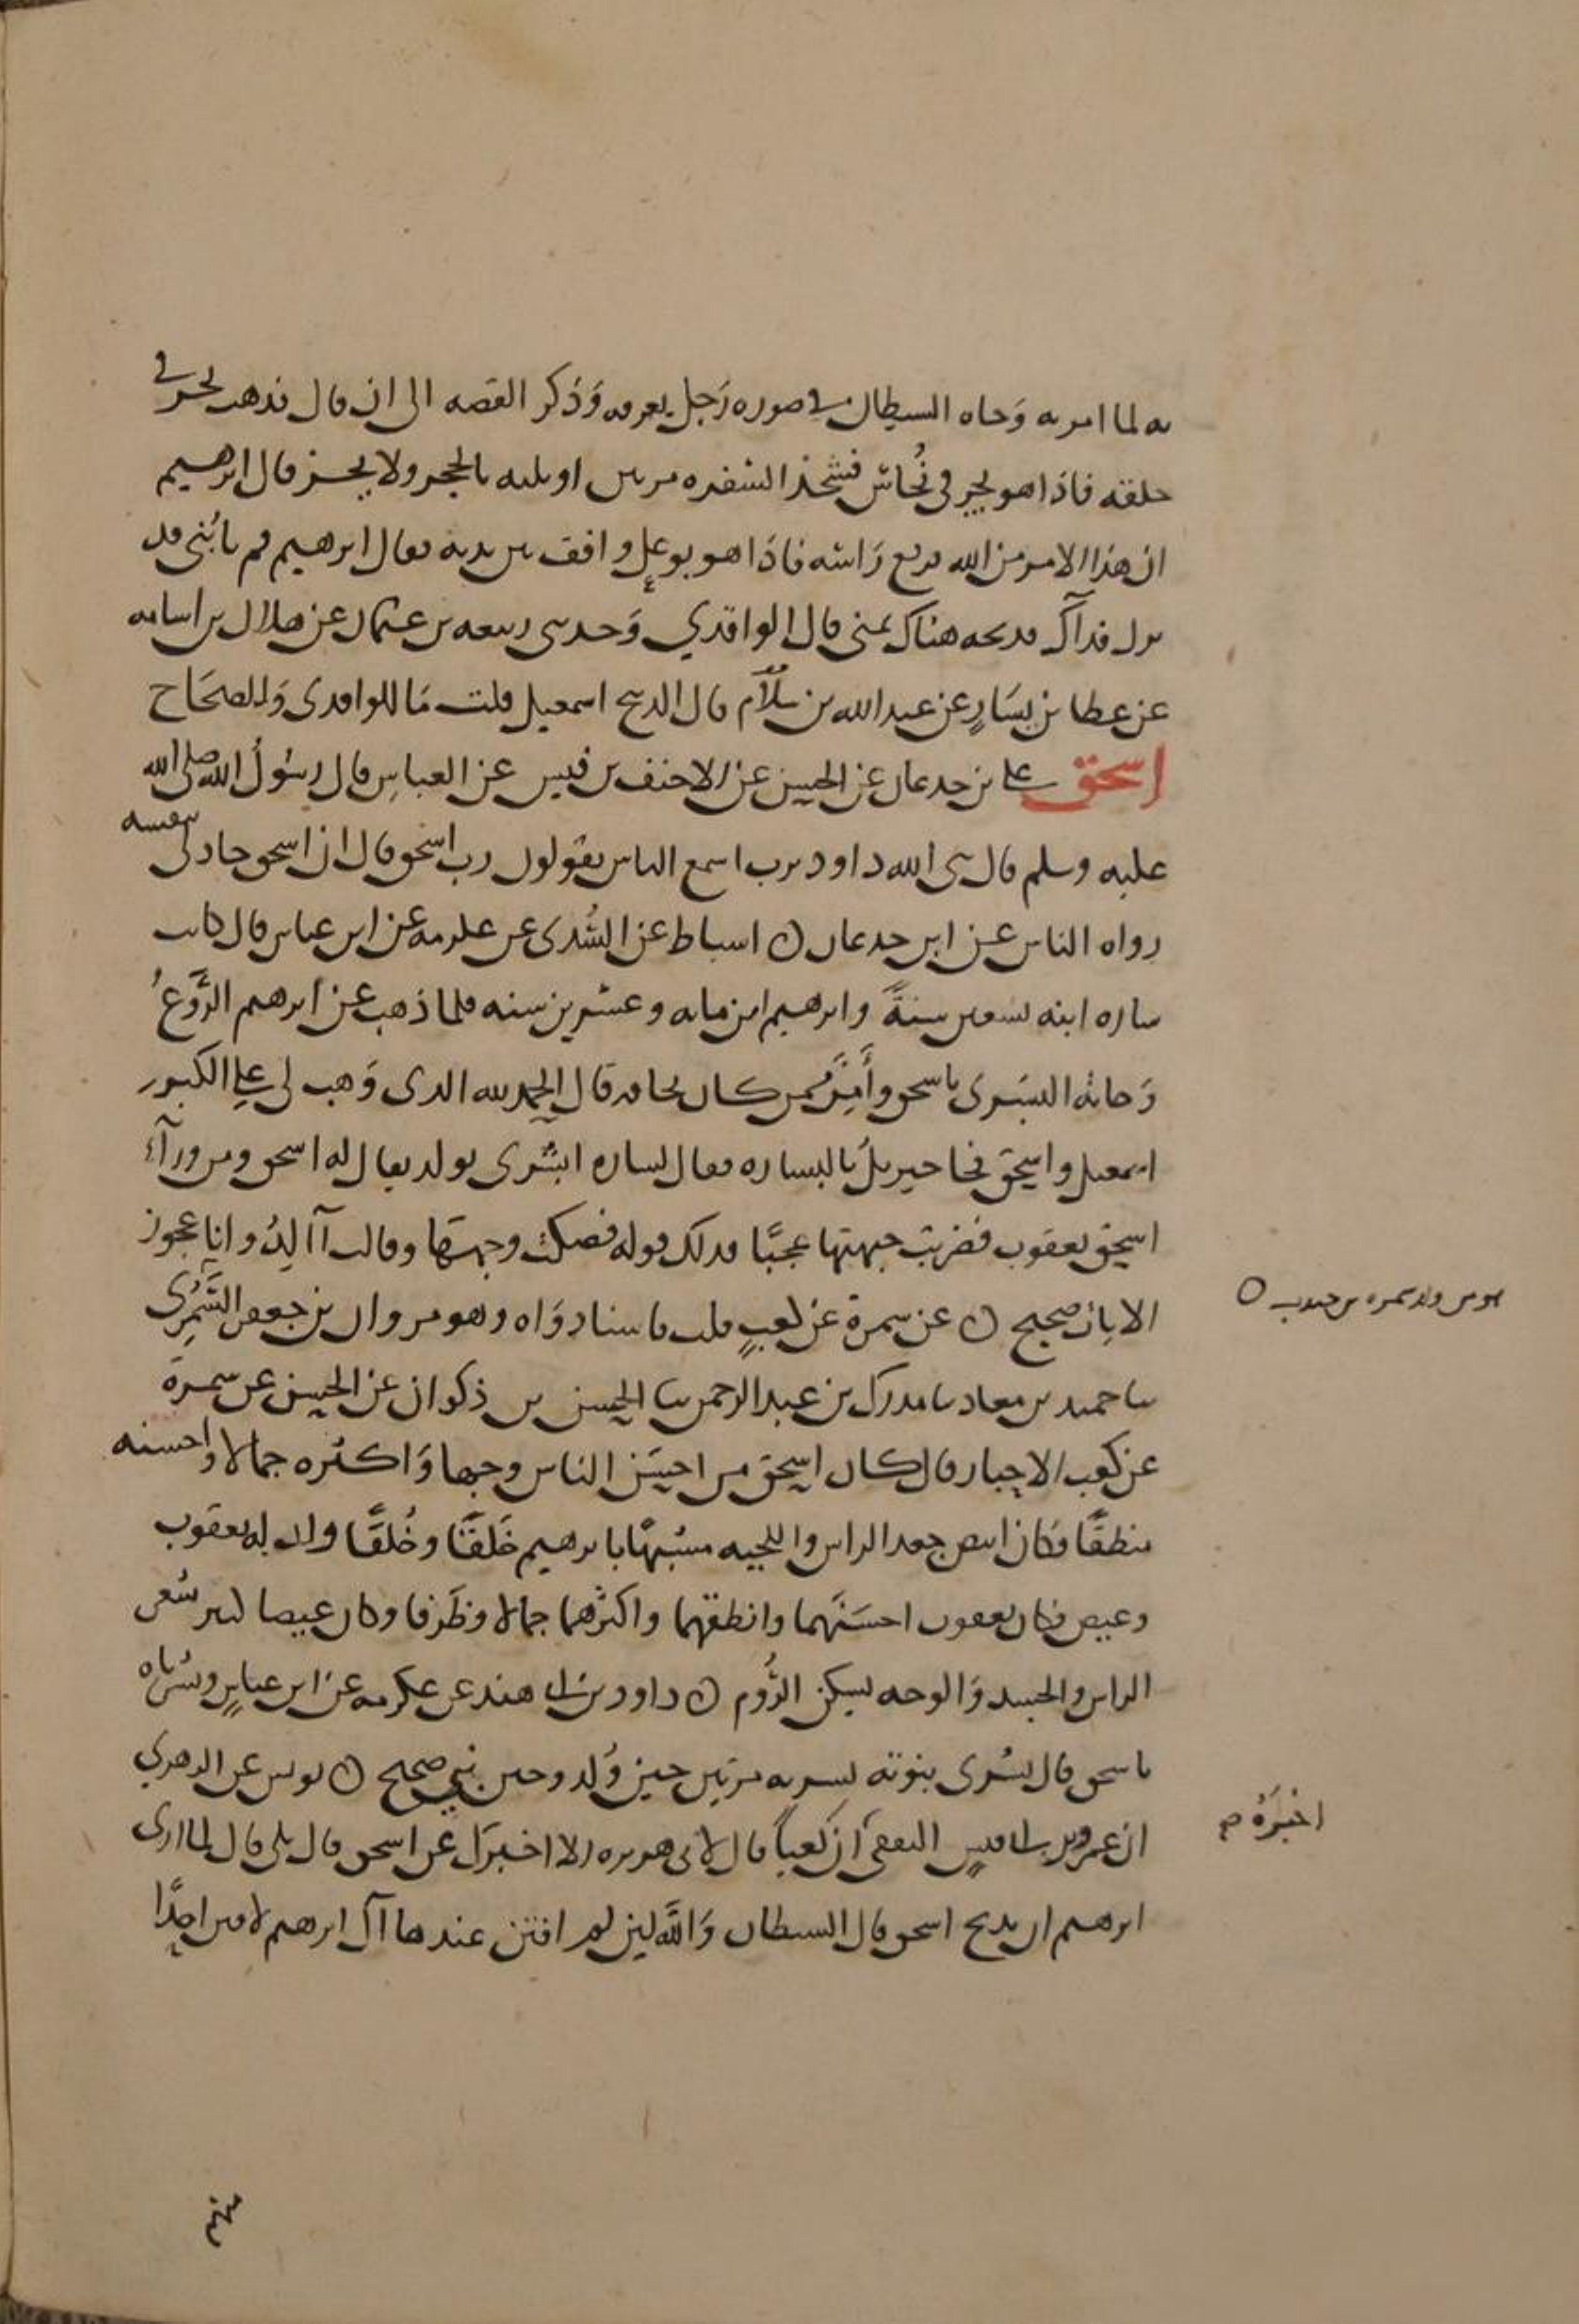 به لما امر به وجاه الشيطان في صوره رجل يعرفه وذكر القصه الى ان قال فذهب يحز في
حلقه فاذا هو يحز في نحاس فشحذ الشفره مرتين او ثلثه بالحجر ولا يحز قال ابرهيم
ان هذا الامر من الله فرفع راسه فاذا هو بوعل واقف بين يديه فقال ابرهيم قم يا بني قد
نزل فداك فذبحه هناك بمنى قال الواقدي وحدثني ربيعه بن عثمان عن هلال بن اسامه
عن عطا بن يسار عن عبد الله بن سلام قال الذبيح اسمعيل قلت ما للواقدي وللصحاح
اسحق علي بن جدعان عن الحسن عن الاحنف بن قيس عن العباس قال رسول الله صلى الله
عليه وسلم قال نبي الله داود يرب اسمع الناس يقولون رب اسحق قال ان اسحق جاد لي بنفسه
رواه الناس عن ابن جدعان ۞ اسباط عن السدي عن عكرمه عن ابن عباس قال كانت
ساره ابنه تسعين سنة وابرهيم ابن مايه وعشرين سنه فلما ذهب عن ابرهيم الروع
وجاته البشرى باسحق وأمن ممن كان يخافه قال الحمد لله الذي وهب لي على الكبر
اسمعيل واسحق فجا جبريل بالبشاره فقال لساره ابشري بولد يقال له اسحق ومن ورآء
اسحق يعقوب فضربت جبهتها عجبًا فذلك قوله فصكت وجهها وقالت آالد وانا عجوز
الايات صحيح ۞ عن سمرة عن كعب قلت باسناد واه وهو مروان بن جعفر السمري
هو من ولد سمره بن جندب ۞
سا حميد بن معاذ سا مدرك بن عبد الرحمن سا الحسن بن ذكوان عن الحسن عن سمرة
عن كعب الاحبار قال كان اسحق من احسن الناس وجها واكثره جمالا واحسنه
منطقًا فكان ابيض جعد الراس واللحيه مشبهًا بابرهيم خَلقًا وخُلقًا وولد له يعقوب
وعيص فكان يعقوب احسنهما وانطقهما واكثرهما جمالا وظرفا وكان عيصا كثير شعر
الراس والجسد والوجه يسكن الروم ۞ داود بن ابي هند عن عكرمه عن ابن عباس وبشرناه
باسحق قال بشرى بنبوته بشر به مرتين حين ولد وحين نبي صحيح ۞ يونس عن الزهري
ان عمرو بن ابي سفين الثقفي أن كعباً قال لابي هريره الا اخبرك عن اسحق قال بلى قال لما اري
اخبَرَهُ صح
ابرهيم ان يذبح اسحق قال الشيطان والله لين لم افتن عندها آل ابرهيم لا افتن احدًا
منهم